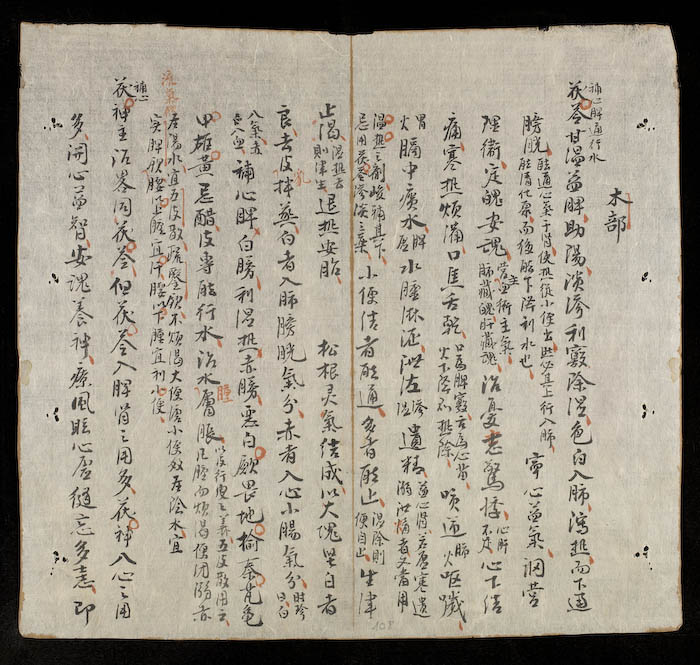 木部
茯苓補心脾通行水甘溫益脾助陽淡滲利竅除湿色白入肺瀉热而下通
膀胱能通心气于腎使热從小便出然必其上行入肺能清化原而後能下降利水也寧心益氣調营
理衛定魄安魂营主血衛主氣肺藏魄肝藏魂治憂恚驚悸心肝不足心下结
痛寒热煩滿口焦舌乾口為脾竅舌為心苗火下降则热除咳逆肺火呕噦
胃火膈中痰水脾虛水腫淋沥泄泻滲湿遺精益心腎若虛寒遺溺泄精者又當用
温热之剤峻補其下忌用茯苓淡滲之藥小便结者能通多者能止湿除則便自止生津
止渴湿热去則津生退热安胎 松根灵氣结成以大塊坚白者
良去皮乳拌蒸白者入肺膀胱氣分赤者入心小腸氣分时珍曰白
入氣赤入血補心脾白勝利湿热赤勝惡白蘞畏地榆秦艽龟
甲雄黄忌醋皮專能行水治水腫膚脹以皮行皮之義五皮散用之凡腫而煩渴便闭溺赤
屬陽水宜五皮散疏鑿飲不煩渴大便溏小便数屬陰水宜
實脾飲流氣飲腰以上腫宜汗腰以下腫宜利小便
茯神補心主治畧同茯苓但茯苓入脾腎之用多茯神入心之用
多開心益智安魂養神療風眩心虛健忘多恚即
108